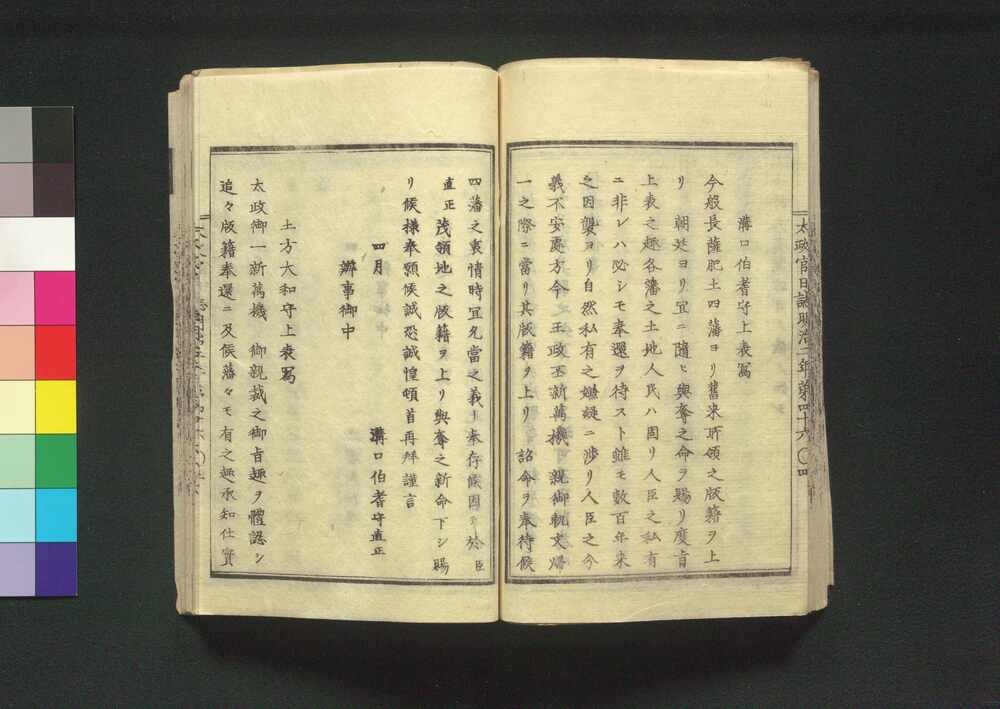 太政官日誌明治二年第四十六〇四
溝口伯耆守上表寫
今般長薩肥土四藩ヨリ舊来所領之版籍ヲ上
リ　朝廷ヨリ宜ニ隨ヒ與奪之命ヲ賜リ度旨
上表之趣各藩之土地人民ハ固リ人臣之私有
ニ非レハ必シモ奉還ヲ待スト雖モ數百年来
之因襲ヨリ自然私有之嫌疑ニ渉リ人臣之今
義不安處方今　王政丕新萬機　親御軌文
一之際ニ當リ其版籍ヲ上リ　詔命ヲ奉待候
四藩之衷情時宜允當之義ト奉存候因テ於臣
直正茂領地之版籍ヲ上リ與奪之新命下シ賜
リ候樣奉願候誠恐誠惶頓首再拜謹言
四月　溝口伯耆守直正
辨事御中
土方大和守上表寫
太政御一新萬機　御親裁之御旨趣ヲ體認シ
追々版籍奉還ニ及候藩々モ有之趣承知仕實